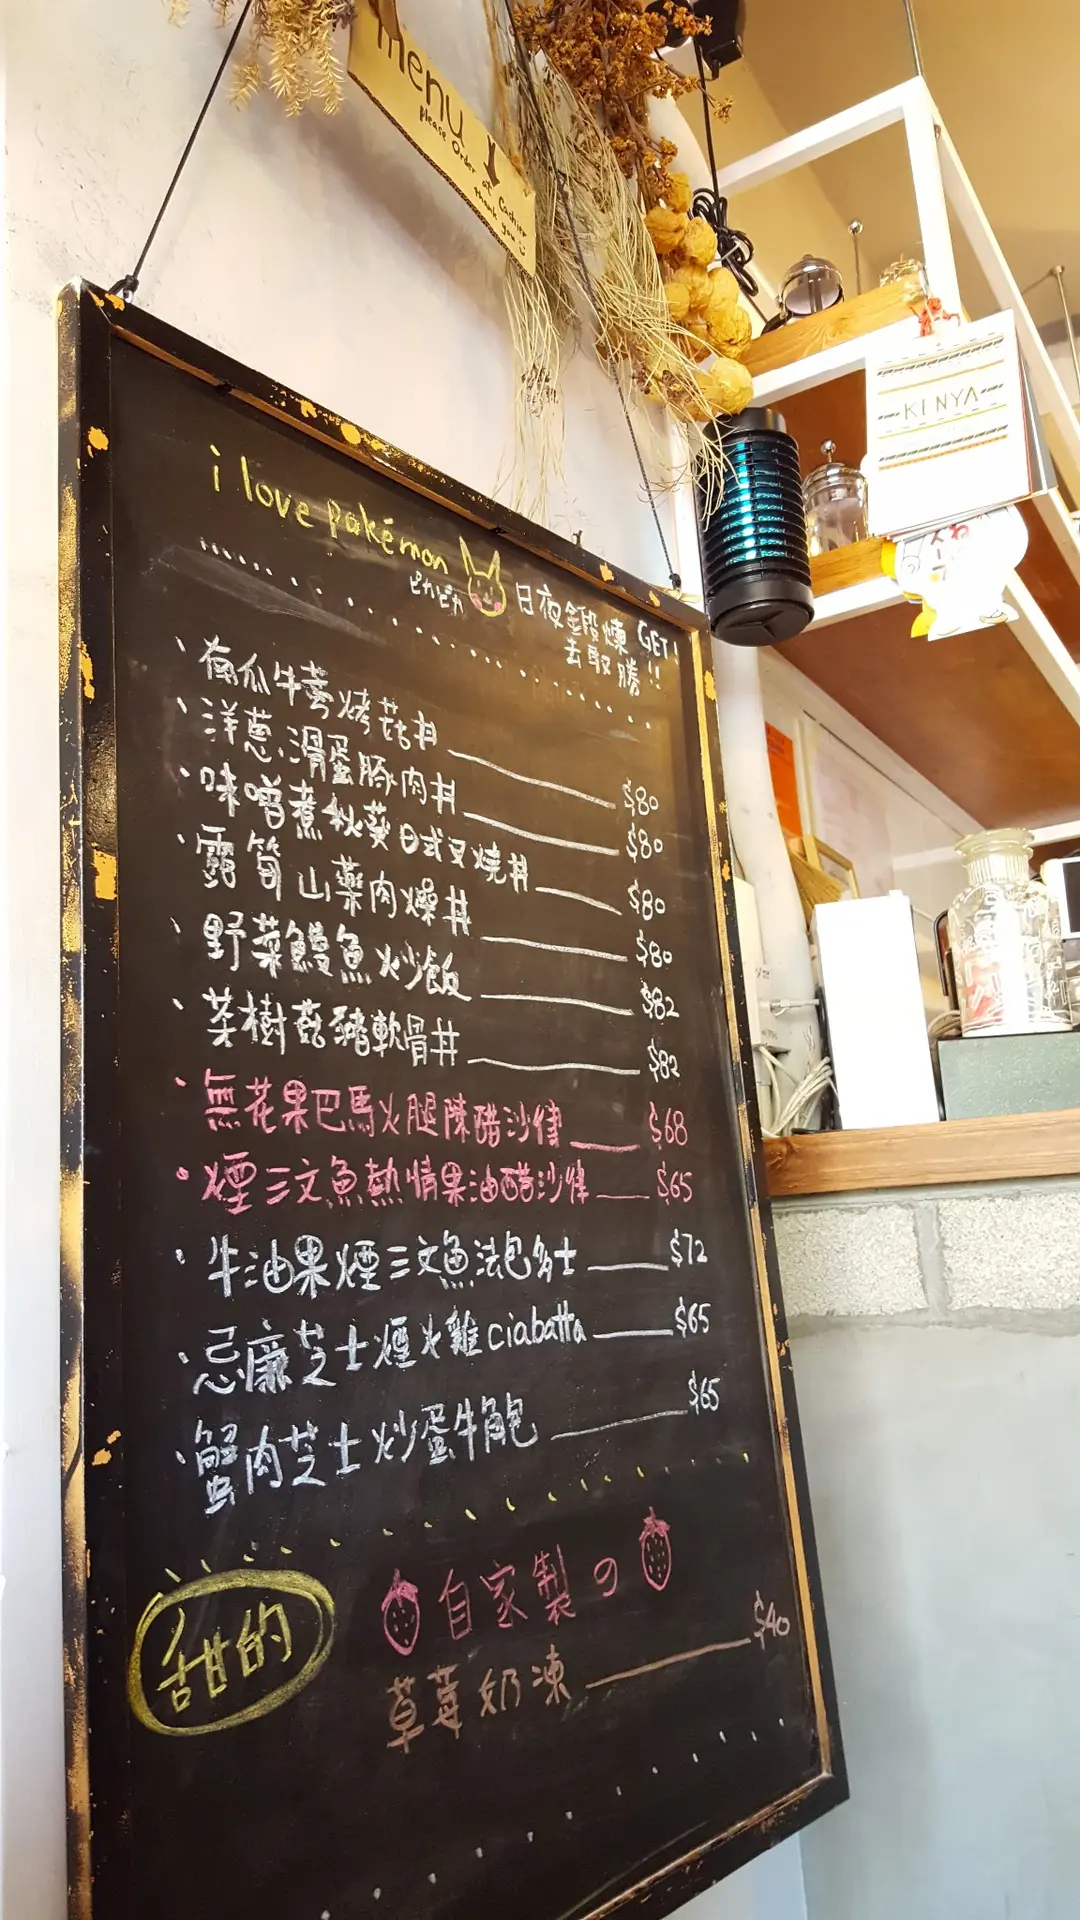 menu
please order at Cashier
thank you
i love pokémon
ピカピカ
日夜鍛煉 GET!
去取勝!!
南瓜牛蒡烤菇丼 $80
洋蔥滑蛋豚肉丼 $80
味噌煮秋葵日式叉燒丼 $80
露筍山藥肉燥丼 $80
野菜鰻魚炒飯 $82
茶樹菇豬軟骨丼 $82
無花果巴馬火腿陳醋沙律 $68
煙三文魚熱情果油醋沙律 $65
牛油果煙三文魚法包多士 $72
忌廉芝士煙火雞ciabatta $65
蟹肉芝士炒蛋牛角包 $65
甜的
自家製の
草莓奶凍 $40
KENYA